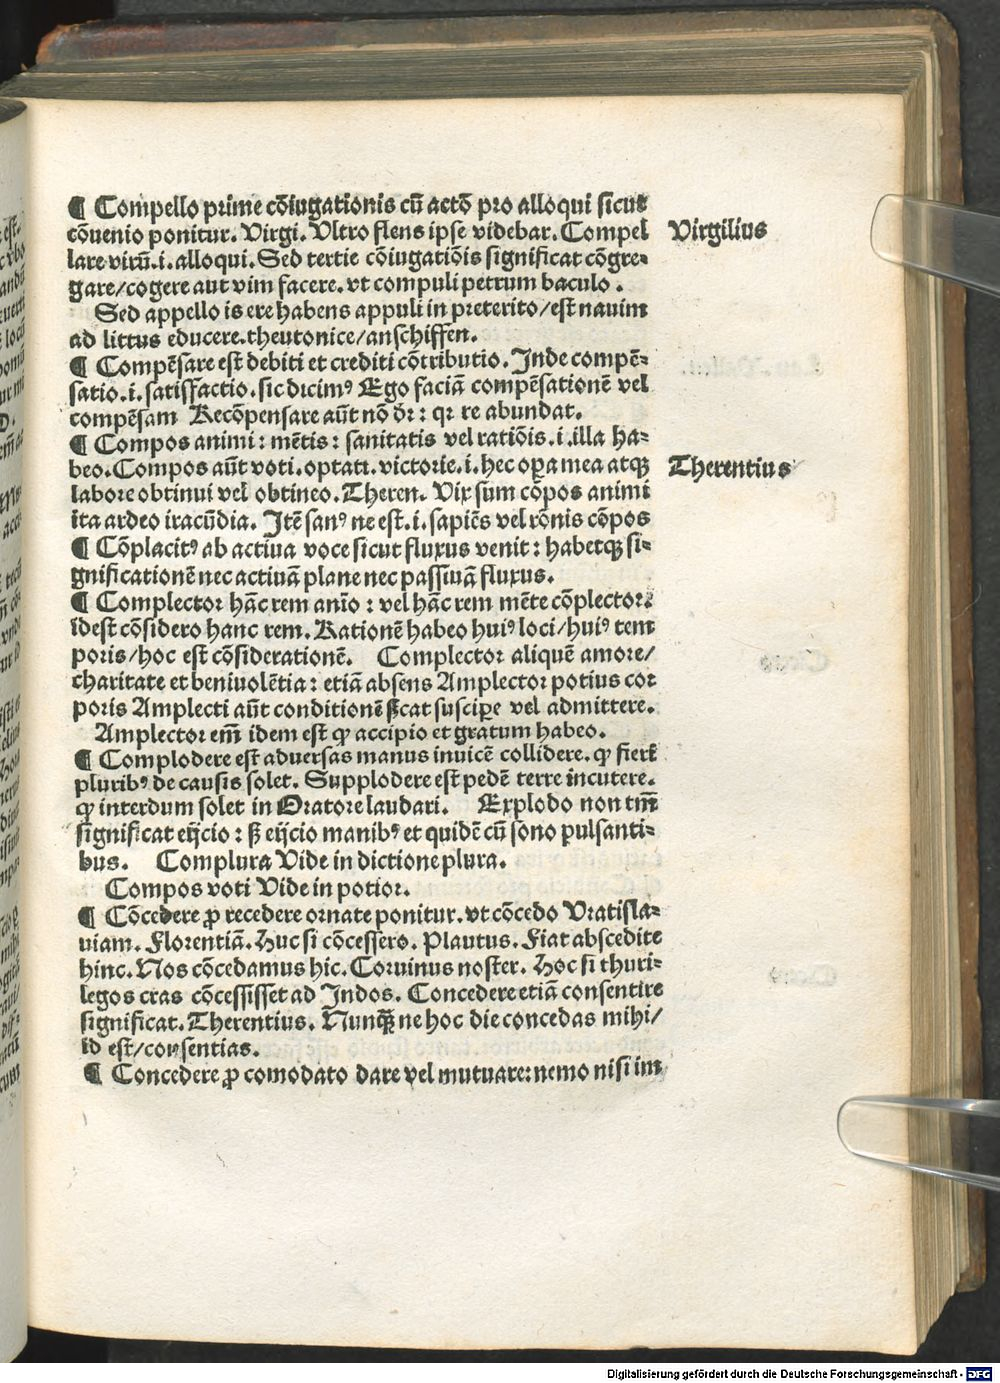 ¶ Compello prime cōiugationis cū actō pro alloqui sicut
cōuenio ponitur. Virgi. Vltro flens ipse videbar. Compel
lare virū.i. alloqui. Sed tertie cōiugatiōis significat cōgre⸗
gare/cogere aut vim facere. vt compuli petrum baculo .
Sed appello is ere habens appuli in preterito/est nauim
ad littus educere.theutonice/anschiffen.
¶ Compēsare est debiti et crediti cōtributio. Inde compē⸗
satio.i. satisfactio. sic dicimꝰ Ego faciā compēsationē vel
compēsam Recōpensare aūt nō dr̄: qꝛ re abundat.
¶ Compos animi: mētis: sanitatis vel ratiōis.i.illa ha⸗
beo. Compos aūt voti. optati. victorie.i. hec oꝑa mea atqꝫ
labore obtinui vel obtineo. Theren. Vix sum cōpos animi
ita ardeo iracūdia. Itē sanꝰ ne est.i. sapiēs vel rōnis cōpos
¶ Cōplacitꝰ ab actiua voce sicut fluxus venit: habetqꝫ si⸗
gnificationē nec actiuā plane nec passiuā fluxus.
¶ Complector hāc rem anīo: vel hāc rem mēte cōplector.
idest cōsidero hanc rem. Rationē habeo huiꝰ loci/huiꝰ tem
poris/hoc est cōsiderationē. Complector aliquē amore/
charitate et beniuolētia: etiā absens Amplector potius cor
poris Amplecti aūt conditionē ſcat susciꝑe vel admittere.
Amplector em̄ idem est ꝙ accipio et gratum habeo.
¶ Complodere est aduersas manus inuicē collidere. ꝙ fieri
pluribꝰ de causis solet. Supplodere est pedē terre incutere.
ꝙ interdum solet in Oratore laudari. Explodo non tm̄
significat eijcio: sꝫ eijcio manibꝰ et quidē cū sono pulsanti⸗
bus. Complura Vide in dictione plura.
Compos voti Vide in potior.
¶ Cōcedere ꝓ recedere ornate ponitur. vt cōcedo Vratisla⸗
uiam. Florentiā. Huc si cōcessero. Plautus. Fiat abscedite
hinc. Nos cōcedamus hic. Coruinus noster. Hoc si thuri⸗
legos cras cōcessisset ad Indos. Concedere etiā consentire
significat. Therentius. Nunqꝫ̄ ne hoc die concedas mihi/
id est/consentias.
¶ Concedere ꝓ comodato dare vel mutuare: nemo nisi im
Virgilius
Therentius
Digitalisierung gefördert durch die Deutsche Forschungsgemeinschaft - DFG